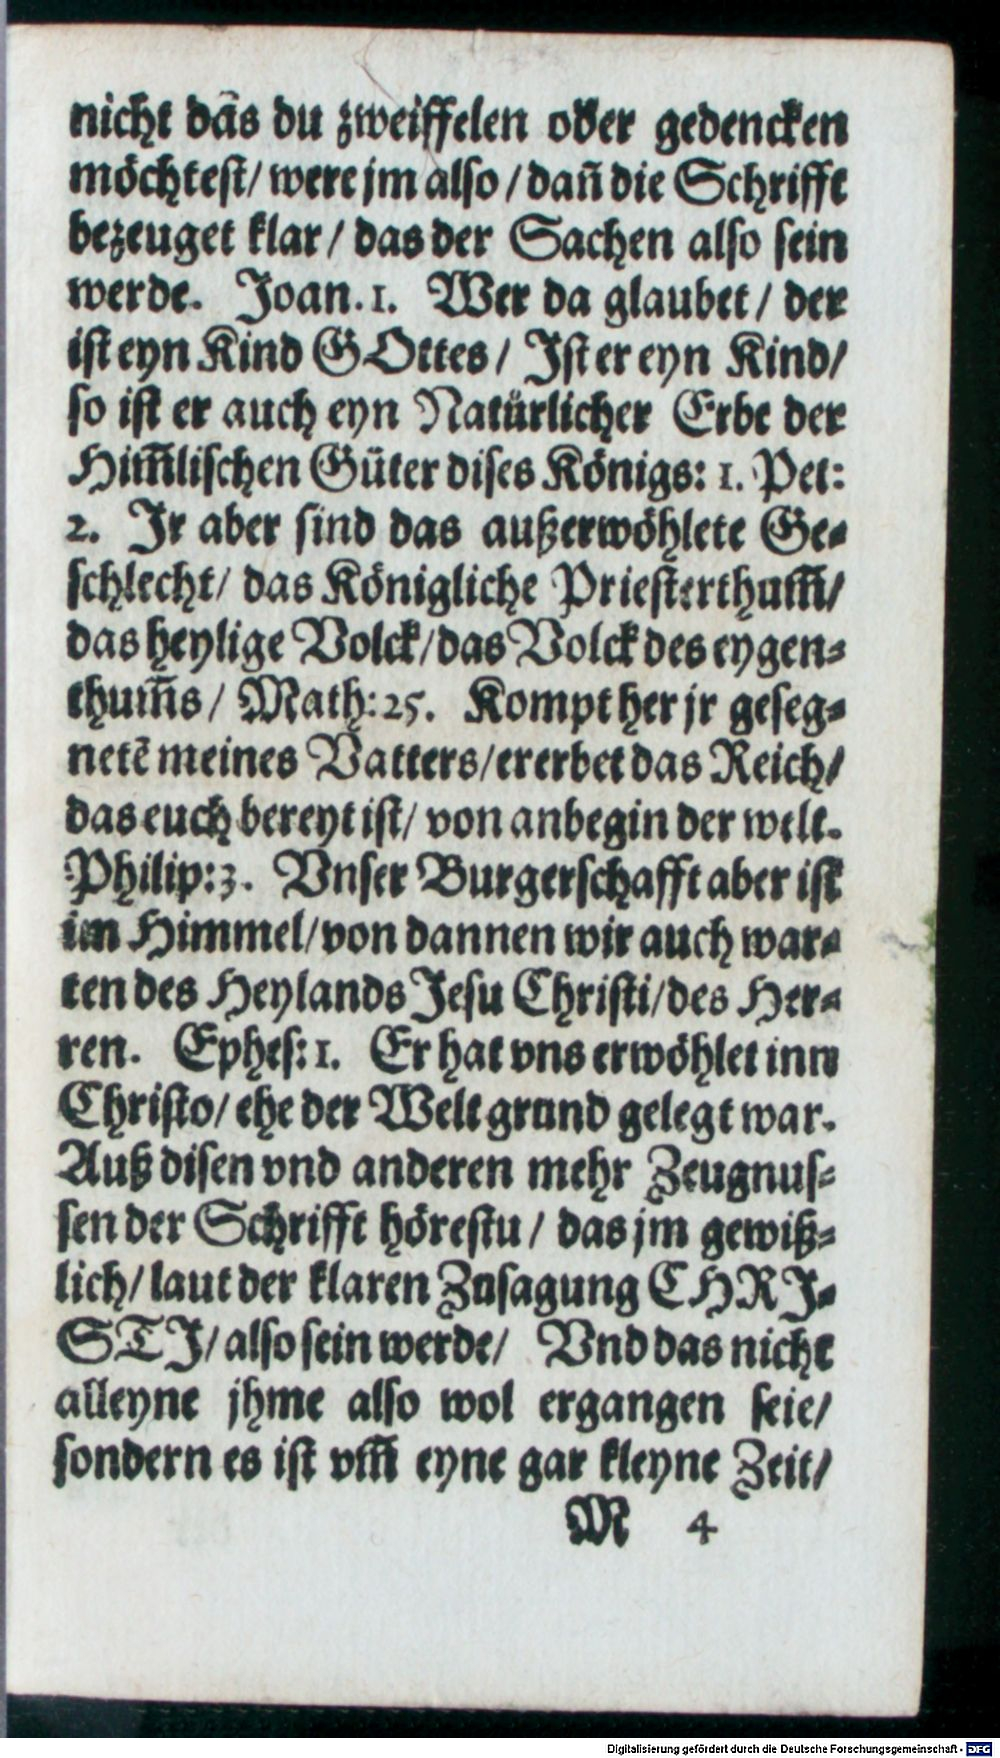 nicht dās du zweiffelen oder gedencken
möchtest/ were jm also / dañ die Schrifft
bezeuget klar / das der Sachen also sein
werde. Joan. 1. Wer da glaubet / der
ist eyn Kind GOttes / Ist er eyn Kind/
so ist er auch eyn Natürlicher Erbe der
Him̃lischen Güter dises Königs: 1. Pet:
2. Ir aber sind das außerwöhlete Ge-
schlecht/ das Königliche Priesterthum̃/
das heylige Volck/das Volck des eygen-
thum̃s / Math: 25. Kompt her jr geseg-
netē meines Vatters/ererbet das Reich/
das euch bereyt ist/ von anbegin der welt.
Philip: 3. Vnser Burgerschafft aber ist
im Himmel/von dannen wir auch war-
ten des Heylands Jesu Christi/des Her-
ren. Ephes: 1. Er hat vns erwöhlet inn
Christo/ ehe der Welt grund gelegt war.
Auß disen vnd anderen mehr Zeugnus-
sen der Schrifft hörestu / das jm gewiß-
lich/ laut der klaren Zusagung CHRI-
STI/ also sein werde/ Vnd das nicht
alleyne jhme also wol ergangen seie/
sondern es ist vm̃ eyne gar kleyne Zeit/
M 4
Digitalisierung gefördert durch die Deutsche Forschungsgemeinschaft - DFG